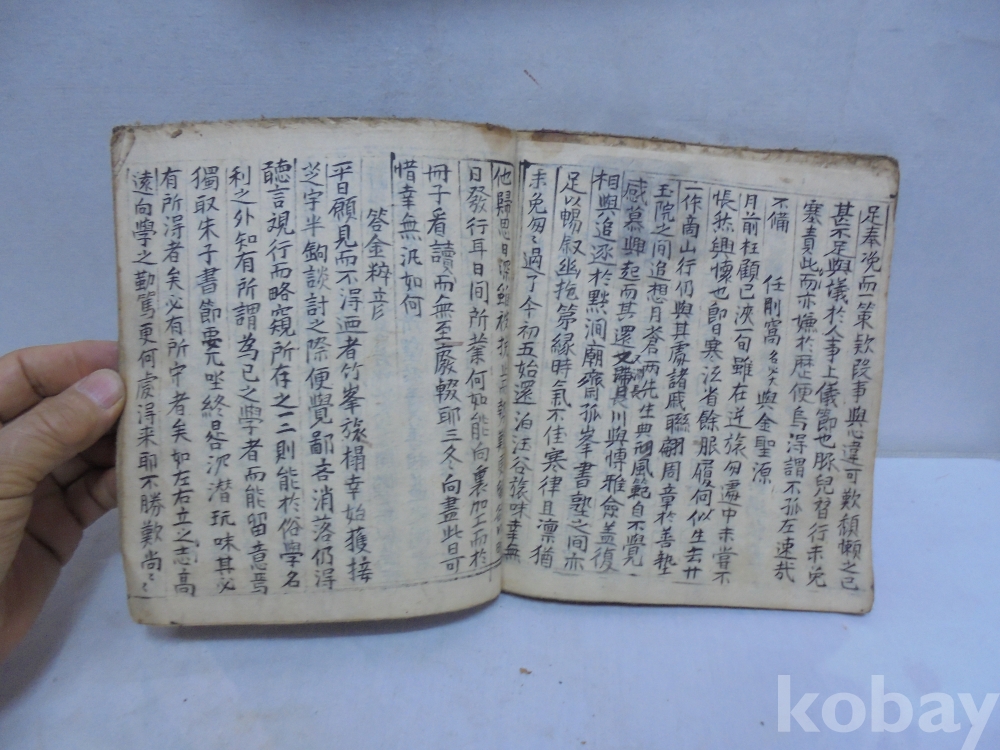 足奉浼而一策欵段事與心違可歎頹懶之已
甚不足與議於人事上儀節也豚兒替行未免
塞責此而亦嫌於歷便烏得謂不孤左速哉
不備
任剛窩 與金聖源
月前枉顧已浹一旬雖在逆旅匆遽中未嘗不
悵然興懷也卽日寒沍省餘服履何似生去廿
一作商山行仍與其處諸戚聯翩周章於善塾
玉院之間追想月蒼兩先生典 風範自不覺
感慕興起而其還又 川與博雅僉益復
相與追逐於黙澗廟齋孤峯書塾之間亦
足以暢叙幽抱第緣時氣不佳寒律且凜猶
未免匆匆過了今初五始還泊汪谷旅味幸無
他歸思日深
日發行耳日間所業何如能向裏加工而於
冊子看讀而無至廢輟耶三冬向盡此日可
惜幸無汎如何
答金粹彦
平日願見而不得迺者竹峯旅榻幸始獲接
芝宇半餉談討之際便覺鄙吝消落仍得
聽言視行而略窺所存之一二則能於俗學名
利之外知有所謂爲己之學者而能留意焉
獨取朱子書節要兀坐終晷沉潛玩味其必
有所得者矣必有所守者矣如左右立之志高
遠向學之勤篤更何處得來耶不勝歎尚〻
kobay